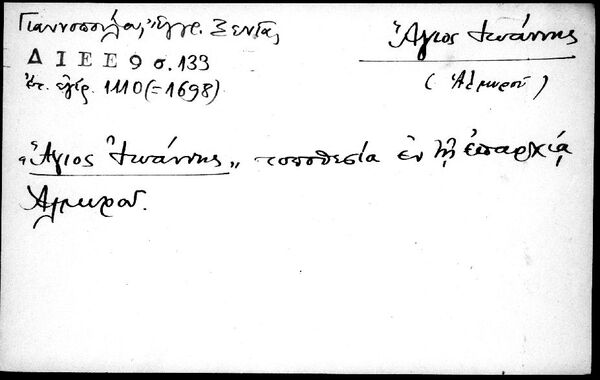 Γιαννοπούλου, Ἔγγρ. Ξενίας,
Δ Ι Ε Ε 9 σ. 133
ἐτ. ἐγίρ. 1110 (=1698)
Ἅγιος Ἰωάννης
(Ἁλμυροῦ)
„Ἅγιος Ἰωάννης„ τοποθεσία ἐν τῇ ἐπαρχίᾳ
Ἁλμυροῦ.